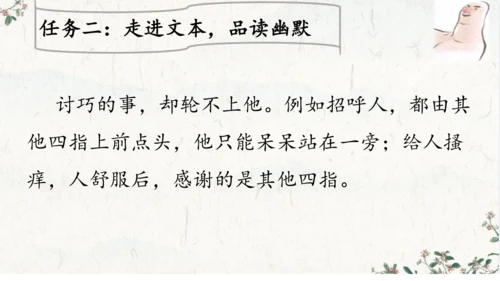 任务二：走进文本，品读幽默
讨巧的事，却轮不上他。例如招呼人，都由其
他四指上前点头，他只能呆呆站在一旁；给人搔
痒，人舒服后，感谢的是其他四指。